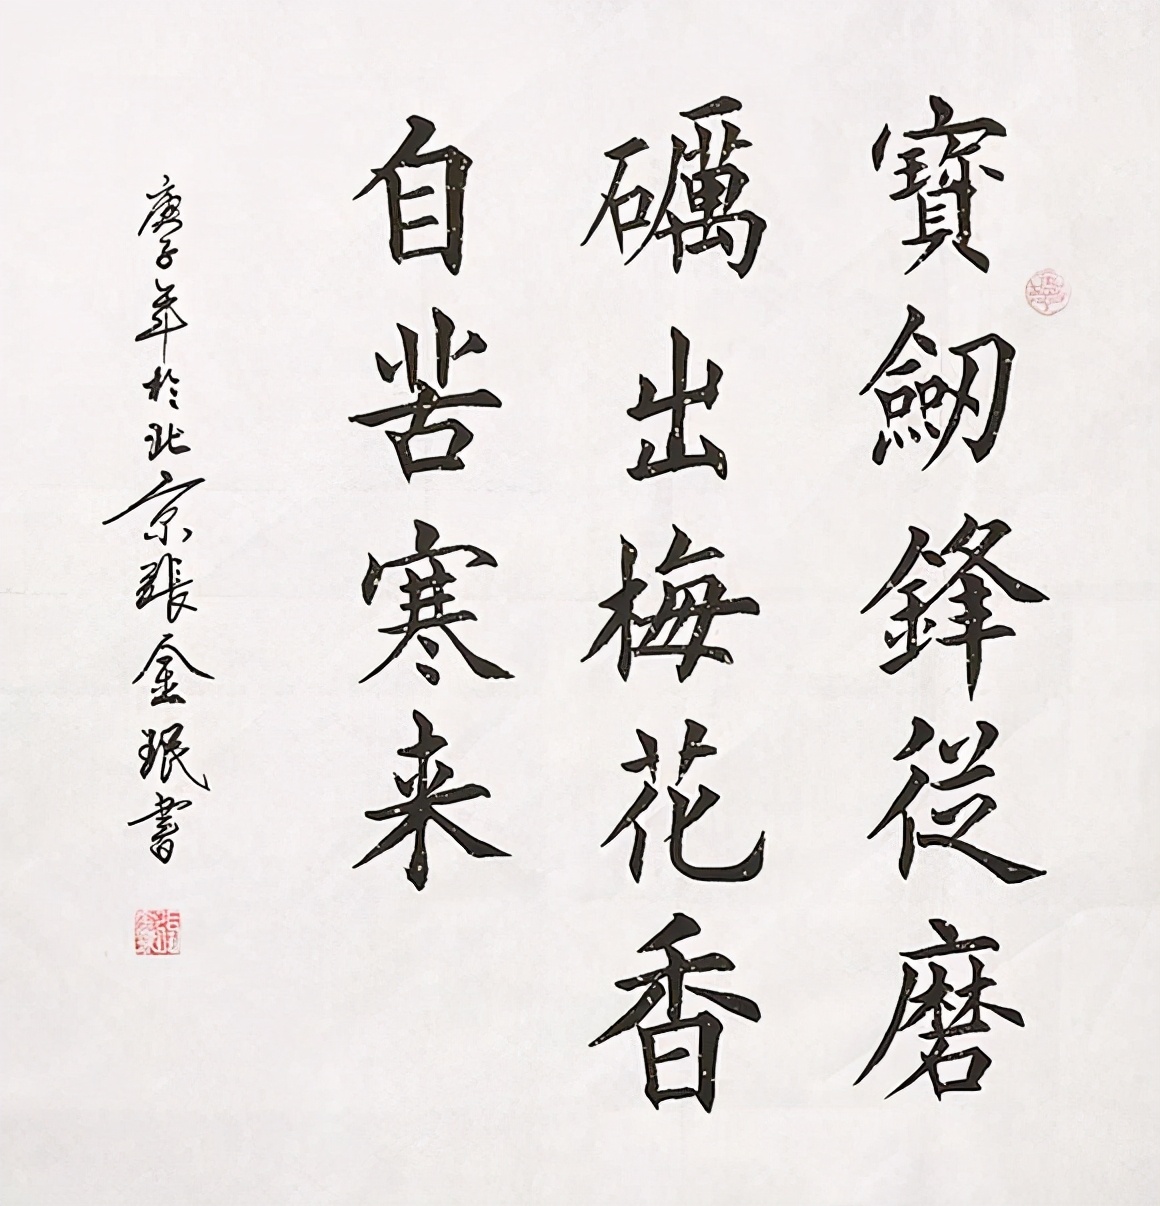 寶劒鋒従磨
礪出梅花香
自苦寒来
庚子年於北京張金珉書